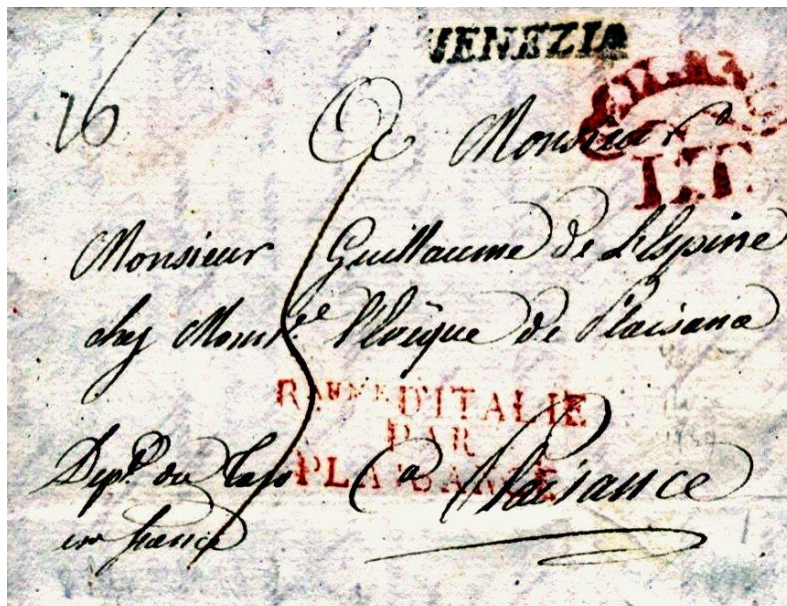 VENEZIA
16
A Monsieur
I.T.
Monsieur Guillaume de L'Espine
chez Mons.r l'Evêque de Plaisance
R.AUME D'ITALIE
PAR
PLAISANCE
Dep.t du Taro
a Plaisance
en france